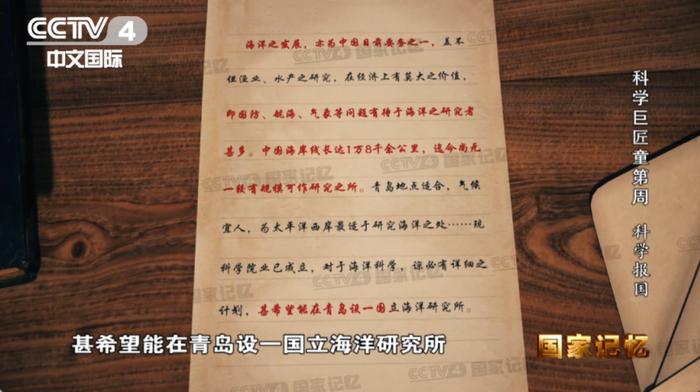 CCTV 4
中文国际
海洋之发展，亦为中国目前要务之一，盖不
但渔业、水产之研究，在经济上有莫大之价值，
即国防、航海、气象等问题有待于海洋之研究者
甚多。中国海岸线长达1万8千余公里，迄今尚无
一较有规模可作研究之所。青岛地点适合，气候
宜人，为太平洋西岸最适于研究海洋之处……现
科学院业已成立，对于海洋科学，谅必有详细之
计划，甚希望能在青岛设一国立海洋研究所。
科学巨匠童第周 科学报国
甚希望能在青岛设一国立海洋研究所
国家记忆
CCTV4 国家记忆
CCTV4 国家记忆
CCTV4 国家记忆
CCTV4 国家记忆